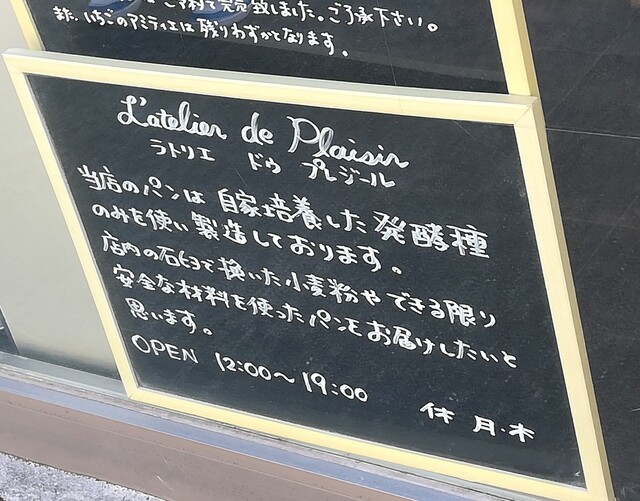 ご予約で完売致しました。ご了承下さい。
また、いちごのアミティエは残りわずかとなります。
L'atelier de Plaisir
ラトリエ ドゥ プレジール
当店のパンは自家培養した発酵種
のみを使い製造しております。
店内の石臼で挽いた小麦粉やできる限り
安全な材料を使ったパンをお届けしたいと
思います。
OPEN 12:00～19:00
休 月・木